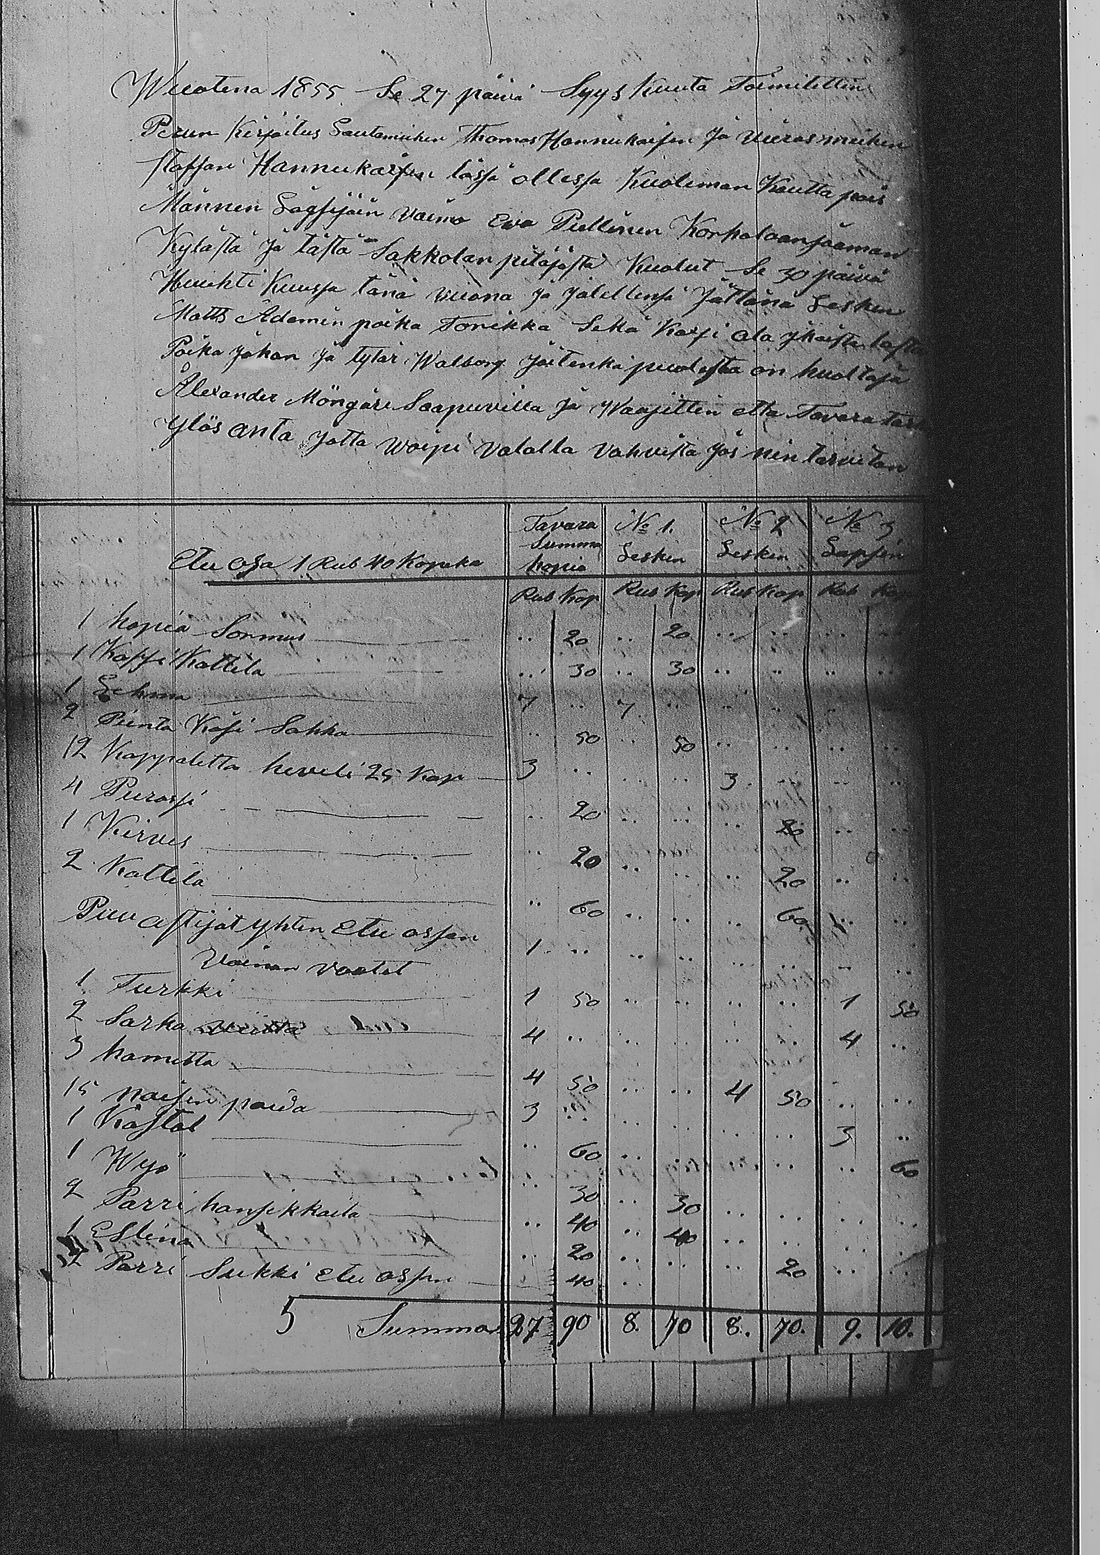 Wuotena 1855 Se 27 päivä Syys Kuuta Toimitettin
Perun Kirjoitus Lautamiehen Thomas Hannukaisen ja vieras miehen
Staffan Hannukaisen läsjä ollesja Kuoleman Kautta pois
Männen vaimo Eva Piellinen Korholaanjaaman
Kylästä ja tästä Sakkolan pitäjästä Kuolut Se 30 päivä
Huuhti Kuusja tänä vuona ja jälellensä Jättänä Lesken
Matts Adamin poika Torikka Sekä Kaxi ala ikäistä lasta
Poika Johan ja tytär Walborg joitenka puolesta on huoltaja
Alexander Möngäre Saapuvilla ja Waajittin etta Tavara
Ylös anta jotta woipi valalla vahvista jos nin tarvitan
Etu osa 1 Rub 40 Kopeka
Tavara Summa hopia
№ 1. Lesken
№ 2 Lesken
№ 3 Lapsen
Rub Kop Rub Kop Rub Kop Rub Kop
1 hopia Sormus .. 20 .. 20 .. .. .. ..
1 Kaffi Kattila .. 30 .. 30 .. .. .. ..
1 Lehma 7 .. 7 .. .. .. .. ..
2 Pienta Käsi Sahka .. 50 .. 50 .. .. .. ..
12 Kappaletta heveli 25 Kop 3 .. .. .. 3 .. .. ..
4 Purasji .. 20 .. .. .. 20 .. ..
1 Kirves .. 20 .. .. .. 20 .. ..
2 Kattila .. 60 .. .. .. 60 .. ..
Puu astijat yhten etu osjan 1 .. .. .. .. .. .. ..
Vaimon vaatet
1 Turkki 1 50 .. .. .. .. 1 50
2 Sarka 4 .. .. .. .. .. 4 ..
3 hametta 4 50 .. .. 4 50 .. ..
15 naisen paida 3 .. .. .. .. .. 3 ..
1 Kästat .. 60 .. .. .. .. .. 60
1 Wyö .. 30 .. 30 .. .. .. ..
2 Parri hansikkaita .. 40 .. 40 .. .. .. ..
1 Eslina .. 20 .. .. .. 20 .. ..
2 Parri Sukki etu osjan .. 40
5 Summa 27 90 8. 70 8. 70. 9. 10.